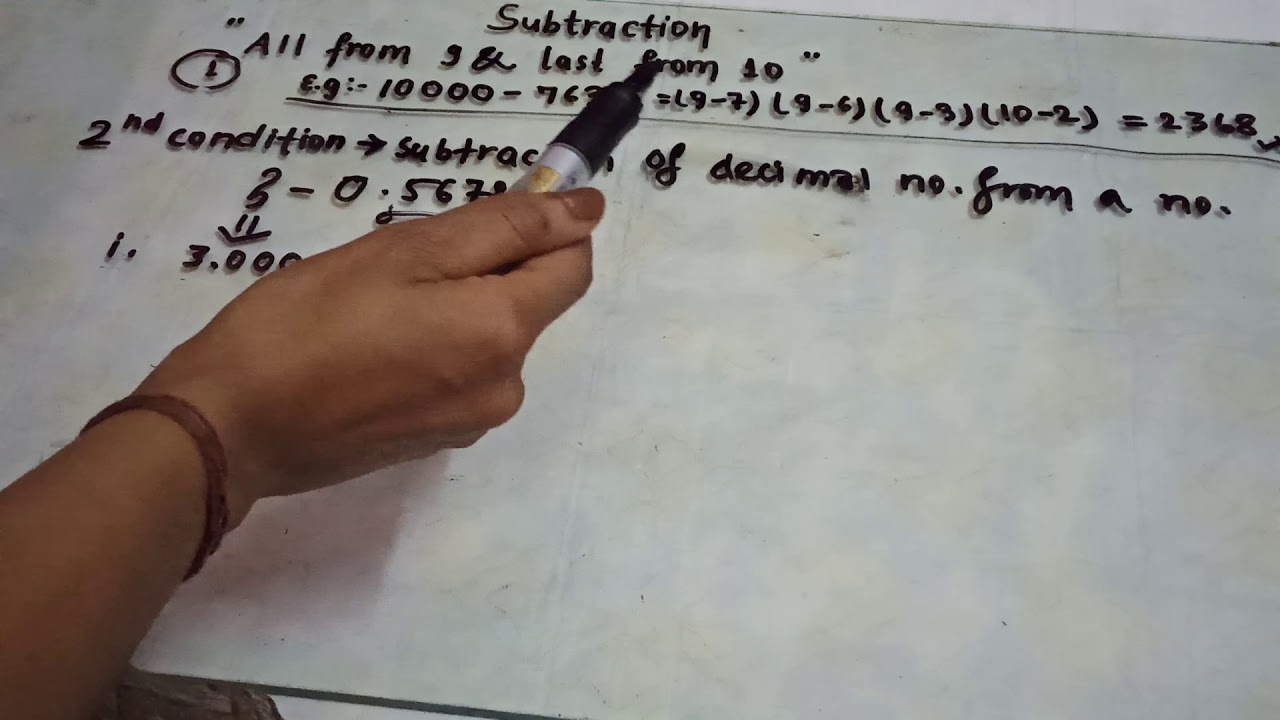 Subtraction
" All from 9 & last from 10 "
① E.g:- 10000 - 763 =(9-7) (9-6) (9-3) (10-2) = 2368
2nd condition → subtrac of decimal no. from a no.
3 - 0.567
i. 3.000